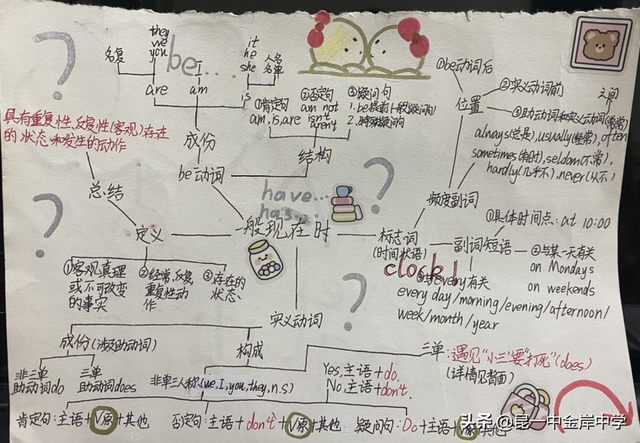 they
we
you
名复
are
be...
I
am
it
he
she
人名
名单
is
成份
be动词
①肯定句
am, is, are
②否定句
am not
isn't
aren't
③疑问句
1. be提前(一般疑问句)
2. 特殊疑问句
结构
①be动词后
②实义动词前
③助动词和实义动词
之间
位置
always(总是), usually(经常), often
sometimes(有时), seldom(不常),
hardly(几乎不), never(从不)
频度副词
具有重复性、反复性(客观)存在
的状态和发生的动作
总结
定义
①客观真理
或不可改变
的事实
②经常、反复
重复性动
作
③存在的
状态、
have...
has...
一般现在时
标志词
(时间状语)
副词短语
①具体时间点: at 10:00
②与某一天有关
on Mondays
on weekends
clock!
③与every有关
every day/morning/evening/afternoon/
week/month/year
实义动词
成份(涉及助动词)
非三单
助动词do
三单
助动词does
构成
非三单人称(we, I, you, they, n.s)
Yes, 主语+do.
No, 主语+don't.
三单: 遇见"小三"要"打死"(does)
(详情见背面)
肯定句: 主语+V原+其他
否定句: 主语+don't+V原+其他
疑问句: Do+主语+V原+其他
头条 @昆一中金岸中学